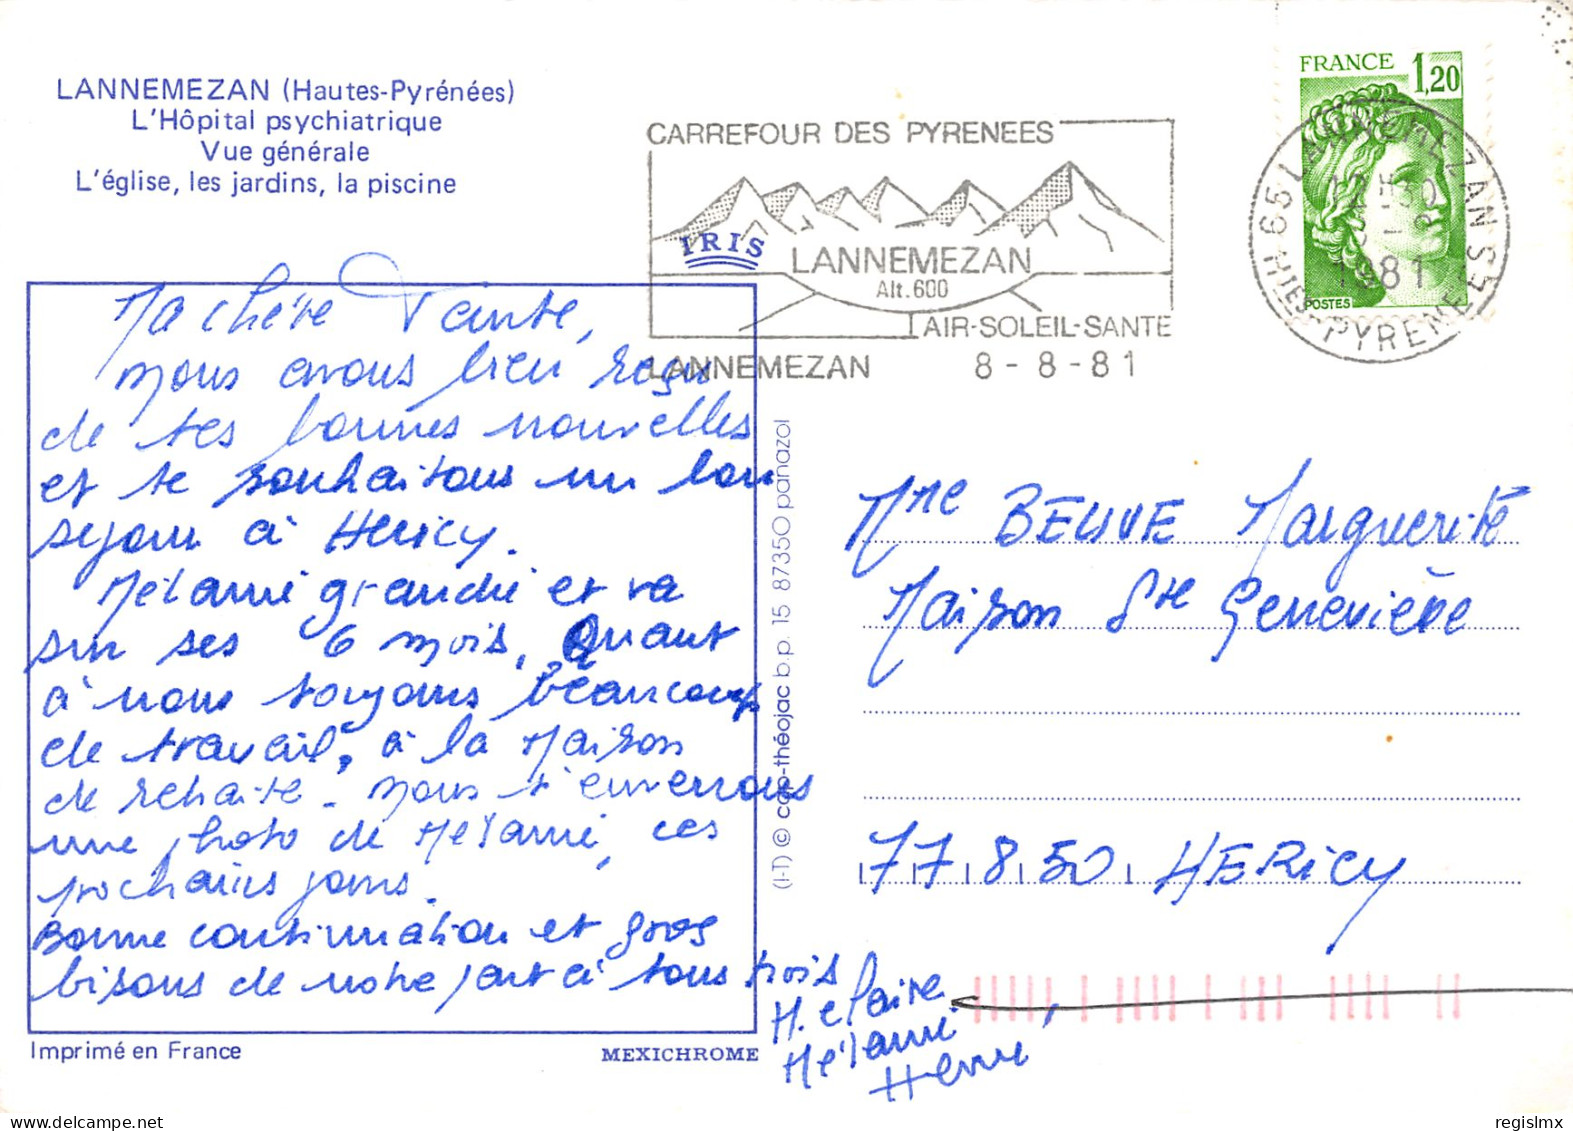 LANNEMEZAN (Hautes-Pyrénées)
L'Hôpital psychiatrique
Vue générale
L'église, les jardins, la piscine
CARREFOUR DES PYRENEES
IRIS
LANNEMEZAN
Alt.600
AIR-SOLEIL-SANTE
LANNEMEZAN 8-8-81
FRANCE 1,20
POSTES
65 LANNEMEZAN
12H30
1981
HTES-PYRENEES
Ma chère Tante,
nous avons bien reçu
de tes bonnes nouvelles
et te souhaitons un bon
sejour à Hericy.
Mélanie grandie et va
sur ses 6 mois, Quant
à nous toujours beaucoup
de travail, à la Maison
de retraite. nous t'enverrons
une photo de Mélanie, ces
prochains jours.
Bonne continuation et gros
bisous de notre part à tous trois
M. Claire
Mélanie
Herve
(I-T) © cap-théojac b.p. 15 87350 panazol
Mme BEUVE Marguerite
Maison Ste Geneviève
77850 HERICY
Imprimé en France
MEXICHROME
regislmx